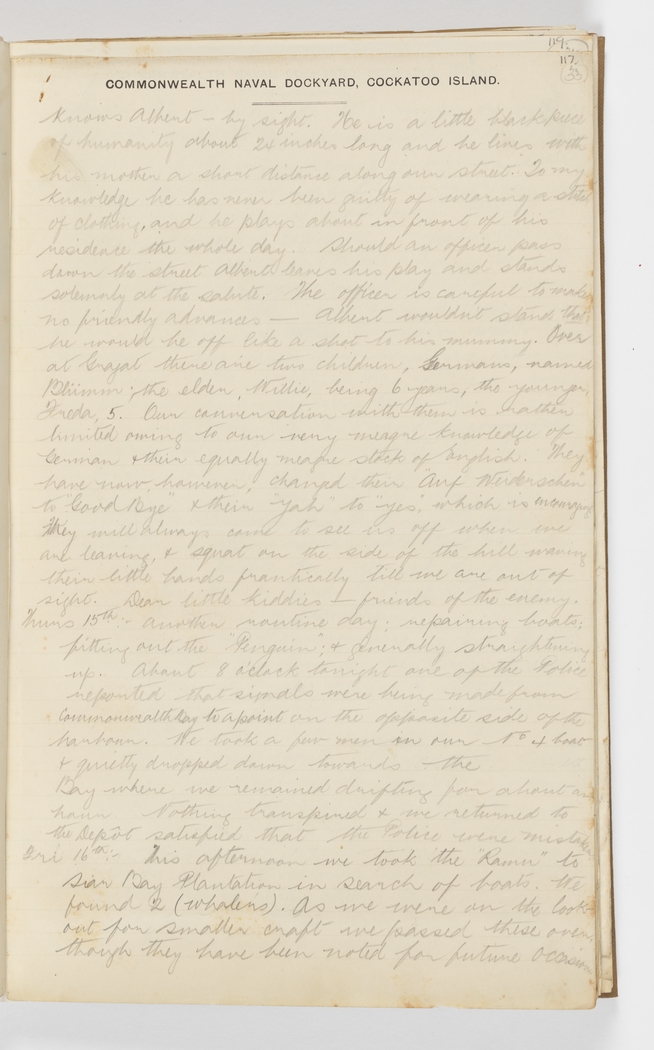 119.
117.
53
COMMONWEALTH NAVAL DOCKYARD, COCKATOO ISLAND.
knows Albert – by sight. He is a little black piece
of humanity about 24 inches long and he lives with
his mother a short distance along our street. To my
knowledge he has never been guilty of wearing a stitch
of clothing, and he plays about in front of his
residence the whole day. Should an officer pass
down the street Albert leaves his play and stands
solemnly at the salute. The officer is careful to make
no friendly advances — Albert wouldn't stand that
he would be off like a shot to his mummy. Over
at Grajat there are two children, Germans, named
Blümm; the elder, Willie, being 6 years, the younger,
Freda, 5. Our conversation with them is rather
limited owing to our very meagre knowledge of
German & their equally meagre stock of English. They
have now, however, changed their "Auf Weiderschen"
to "Good Bye" & their "Yah" to "yes", which is encouraging
They will always come to see us off when we
are leaving, & squat on the side of the hill waving
their little hands frantically till we are out of
sight. Dear little kiddies – friends of the enemy.
Thurs 15th:- Another routine day; repairing boats;
fitting out the "Penguin"; & generally straightening
up. About 8 o'clock tonight one of the Police
reported that signals were being made from
Commonwealth Bay to a point on the opposite side of the
harbour. We took a few men in our No 4 boat
& quietly dropped down towards the
Bay where we remained drifting for about an
hour. Nothing transpired & we returned to
the Depôt satisfied that the Police were mistaken
Fri 16th:- This afternoon we took the "Ramu" to
Siar Bay Plantation in search of boats. We
found 2 (whalers). As we were on the look
out for smaller craft we passed these over,
though they have been noted for future occasion